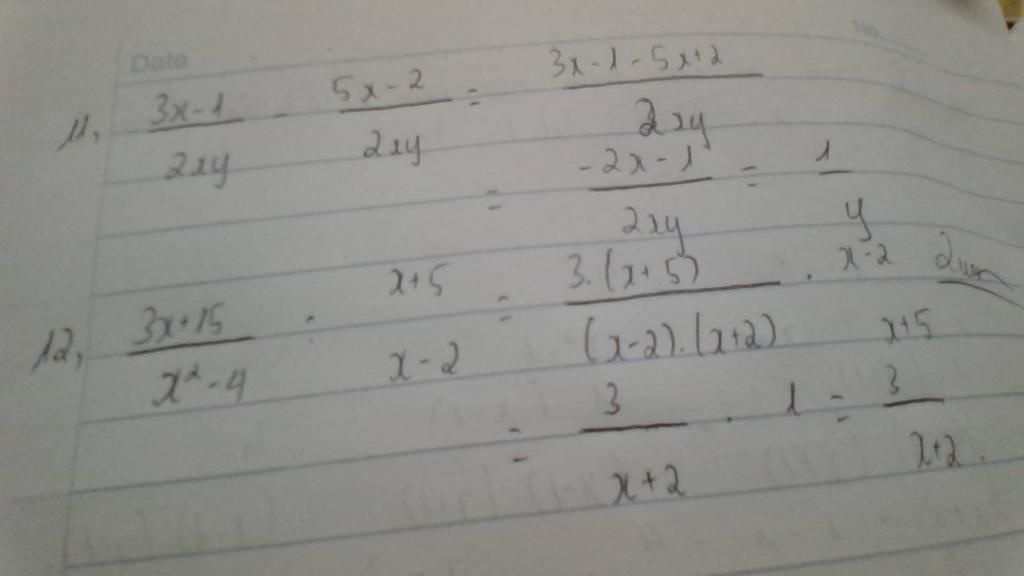 Date No.
11, \frac{3x-1}{2xy} - \frac{5x-2}{2xy} = \frac{3x-1-5x+2}{2xy}
= \frac{-2x-1}{2xy} = \frac{1}{y}
12, \frac{3x+15}{x^2-4} : \frac{x+5}{x-2} = \frac{3.(x+5)}{(x-2).(x+2)} . \frac{x-2}{x+5}
= \frac{3}{x+2} . 1 = \frac{3}{x+2}.